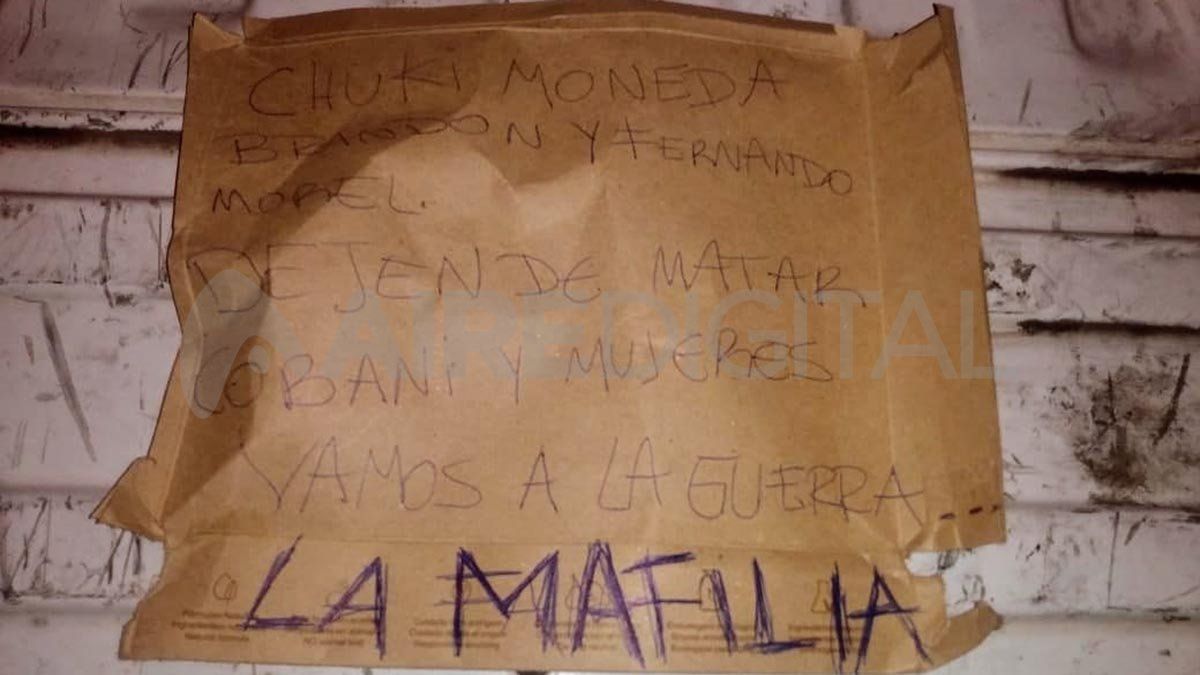 CHUKI MONEDA
BRANDON Y FERNANDO
MOREL.
DEJEN DE MATAR
COBANI Y MUJERES
VAMOS A LA GUERRA....
LA MAFILIA
AIREDIGITAL